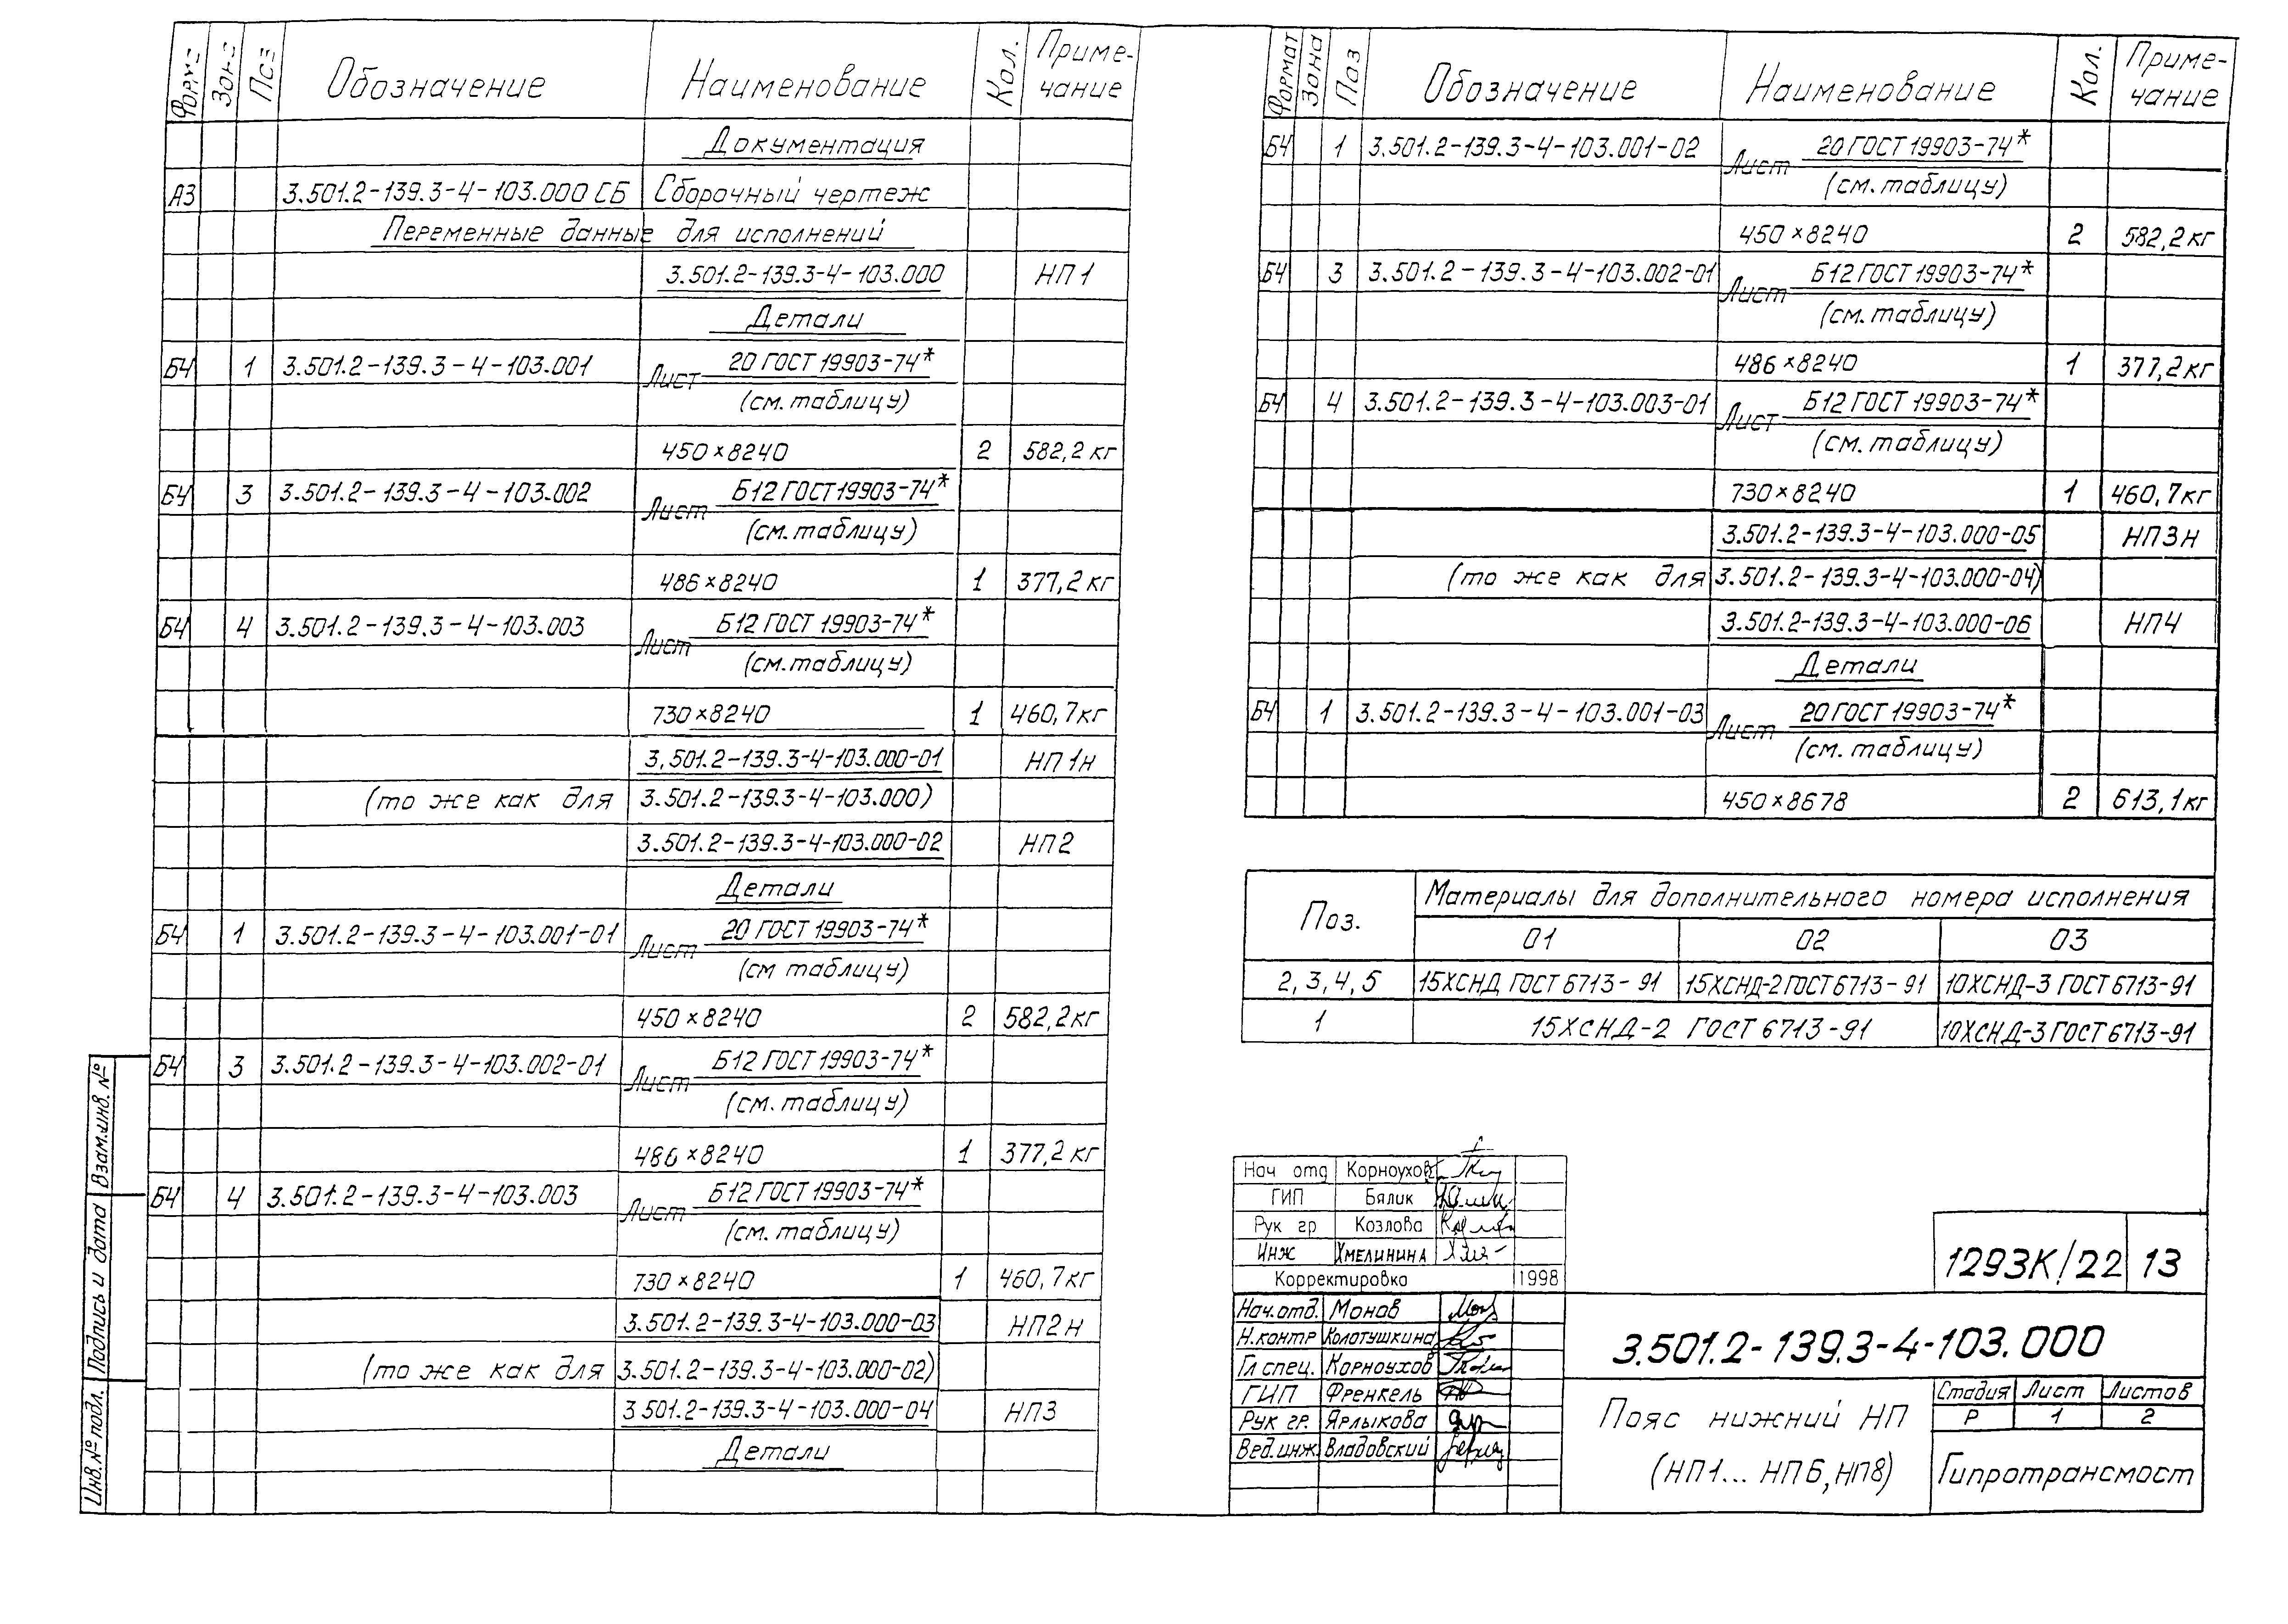 Форм Зона Поз Обозначение Наименование Кол. Приме-
чание
Документация
А3 3.501.2-139.3-4-103.000 СБ Сборочный чертеж
Переменные данные для исполнений
3.501.2-139.3-4-103.000 НП1
Детали
БЧ 1 3.501.2-139.3-4-103.001 Лист 20 ГОСТ 19903-74*
(см. таблицу)
450×8240 2 582,2 кг
БЧ 3 3.501.2-139.3-4-103.002 Лист Б12 ГОСТ 19903-74*
(см. таблицу)
486×8240 1 377,2 кг
БЧ 4 3.501.2-139.3-4-103.003 Лист Б12 ГОСТ 19903-74*
(см. таблицу)
730×8240 1 460,7кг
3,501.2-139.3-4-103.000-01 НП1н
(то же как для 3.501.2-139.3-4-103.000)
3.501.2-139.3-4-103.000-02 НП2
Детали
БЧ 1 3.501.2-139.3-4-103.001-01 Лист 20 ГОСТ 19903-74*
(см таблицу)
450×8240 2 582,2кг
БЧ 3 3.501.2-139.3-4-103.002-01 Лист Б12 ГОСТ 19903-74*
(см. таблицу)
486×8240 1 377,2 кг
БЧ 4 3.501.2-139.3-4-103.003 Лист Б12 ГОСТ 19903-74*
(см. таблицу)
730×8240 1 460,7кг
3.501.2-139.3-4-103.000-03 НП2н
(то же как для 3.501.2-139.3-4-103.000-02)
3.501.2-139.3-4-103.000-04 НП3
Детали
Формат Зона Поз Обозначение Наименование Кол. Приме-
чание
БЧ 1 3.501.2-139.3-4-103.001-02 Лист 20 ГОСТ 19903-74*
(см. таблицу)
450×8240 2 582,2кг
БЧ 3 3.501.2-139.3-4-103.002-01 Лист Б12 ГОСТ 19903-74*
(см. таблицу)
486×8240 1 377,2кг
БЧ 4 3.501.2-139.3-4-103.003-01 Лист Б12 ГОСТ 19903-74*
(см. таблицу)
730×8240 1 460,7кг
3.501.2-139.3-4-103.000-05 НП3н
(то же как для 3.501.2-139.3-4-103.000-04)
3.501.2-139.3-4-103.000-06 НП4
Детали
БЧ 1 3.501.2-139.3-4-103.001-03 Лист 20 ГОСТ 19903-74*
(см. таблицу)
450×8678 2 613,1кг
Поз. Материалы для дополнительного номера исполнения
01 02 03
2, 3, 4, 5 15ХСНД ГОСТ 6713-91 15ХСНД-2 ГОСТ 6713-91 10ХСНД-3 ГОСТ 6713-91
1 15ХСНД-2 ГОСТ 6713-91 10ХСНД-3 ГОСТ 6713-91
Нач отд Корноухов
ГИП Бялик
Рук гр Козлова
Инж Хмелинина
Корректировка 1998
Нач.отд. Монов
Н.контр Колотушкина
Гл спец. Корноухов
ГИП Френкель
Рук гр. Ярлыкова
Вед.инж. Владовский
1293К/22 13
3.501.2-139.3-4-103.000
Пояс нижний НП
(НП1... НП6, НП8)
Стадия Лист Листов
Р 1 2
Гипротрансмост
Взам.инв.№
Подпись и дата
Инв.№ подл.